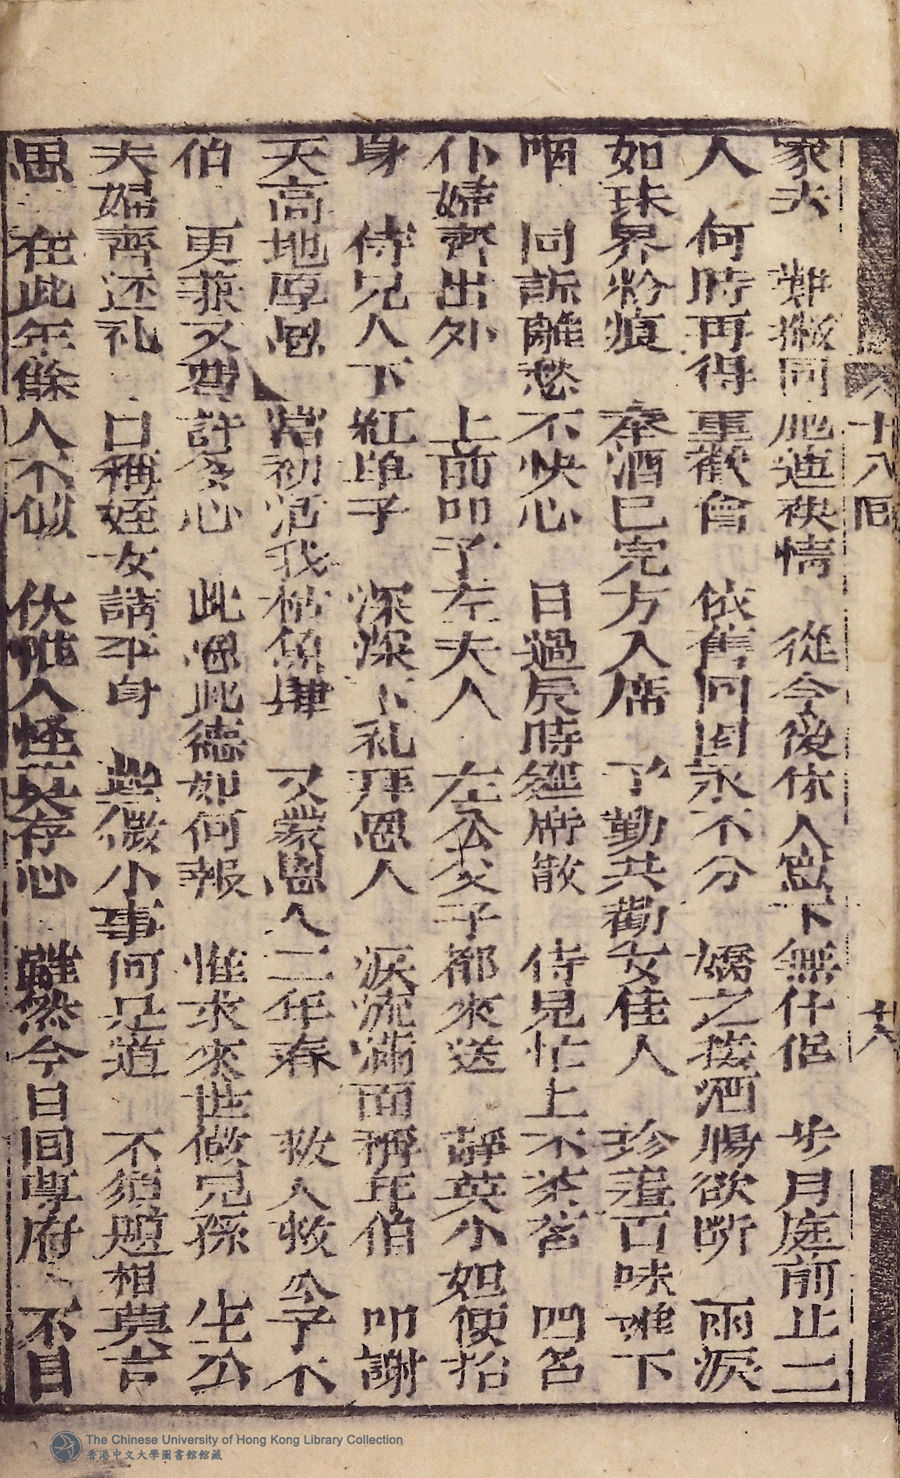 家夫 難撇同胞連袂情 從今後你人嵗下無什侶 步月庭前止二
人 何時再得重歡會 依舊同圍永不分 嬌之接酒腸欲断 兩淚
如珠界粉痕 奉酒已完方入席 了勤共勸女佳人 珍羞百味难下
咽 同訴離愁不快心 日過辰時經席散 侍兒忙上不茶茗 四名
仆婦齊出外 上前叩了左夫人 左公父子都來送 靜英小姐便抬
身 侍兒人下紅毡子 深深下礼拜恩人 淚流滿面稱年伯 叩謝
天高地厚恩 當初活我枯魚肆 又蒙恩人二年春 救人救 子不
伯 更蒙又費許多心 此恩此德如何報 惟求來世做兒孫 生公
夫婦齊还礼 口稱姪女請平身 些微小事何足道 不須題相莫言
恩 在此年餘人不似 伏惟人怪莫存心 雖然今日回尊府 不目
十八回
廿八
The Chinese University of Hong Kong Library Collection
香港中文大學圖書館館藏